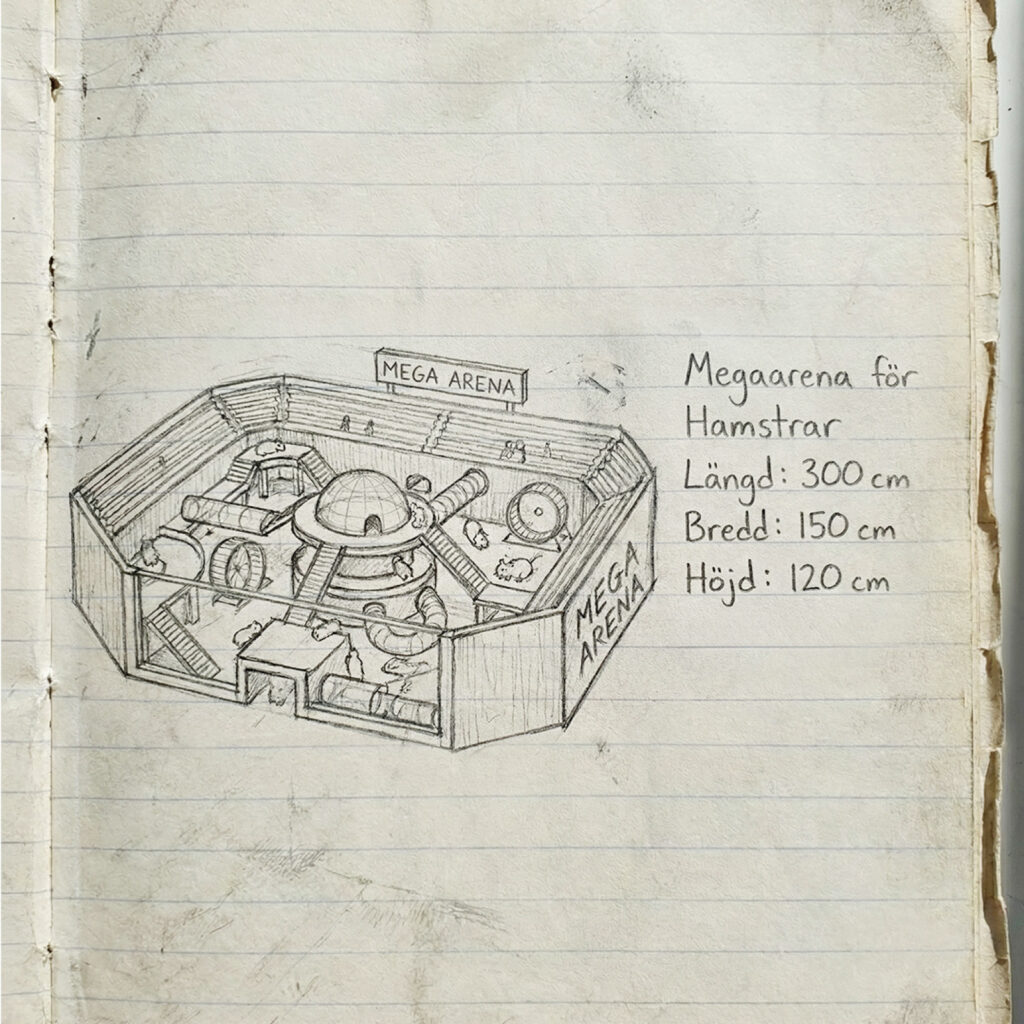 MEGA ARENA
Megaarena för
Hamstrar
Längd: 300 cm
Bredd: 150 cm
Höjd: 120 cm
MEGA
ARENA